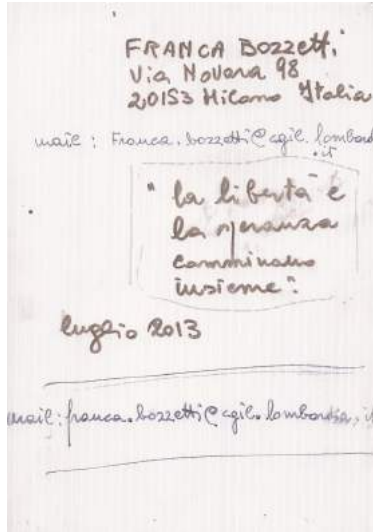 FRANCA BOZZETTI
Via Novara 98
20153 Milano Italia
mail : Franca.bozzetti@cgil.lombard
.it
"la libertà e
la speranza
camminano
insieme".
luglio 2013
mail: franca.bozzetti@cgil.lombardia.it